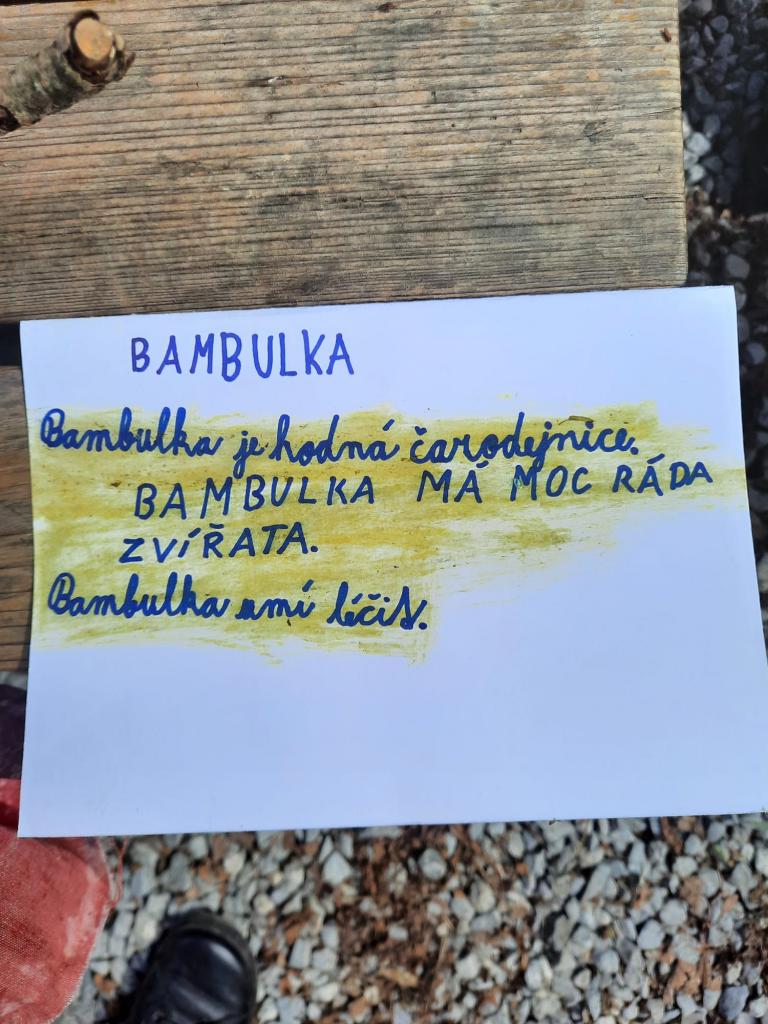 BAMBULKA
Bambulka je hodná čarodejnice.
BAMBULKA MÁ MOC RÁDA
ZVÍŘATA.
Bambulka umí léčit.